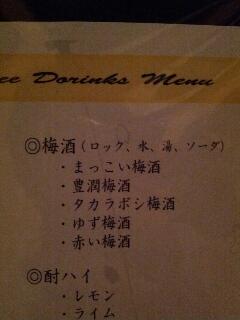 ee Dorinks Menu
◎梅酒(ロック、水、湯、ソーダ)
・まっこい梅酒
・豊潤梅酒
・タカラボシ梅酒
・ゆず梅酒
・赤い梅酒
◎酎ハイ
・レモン
・ライム